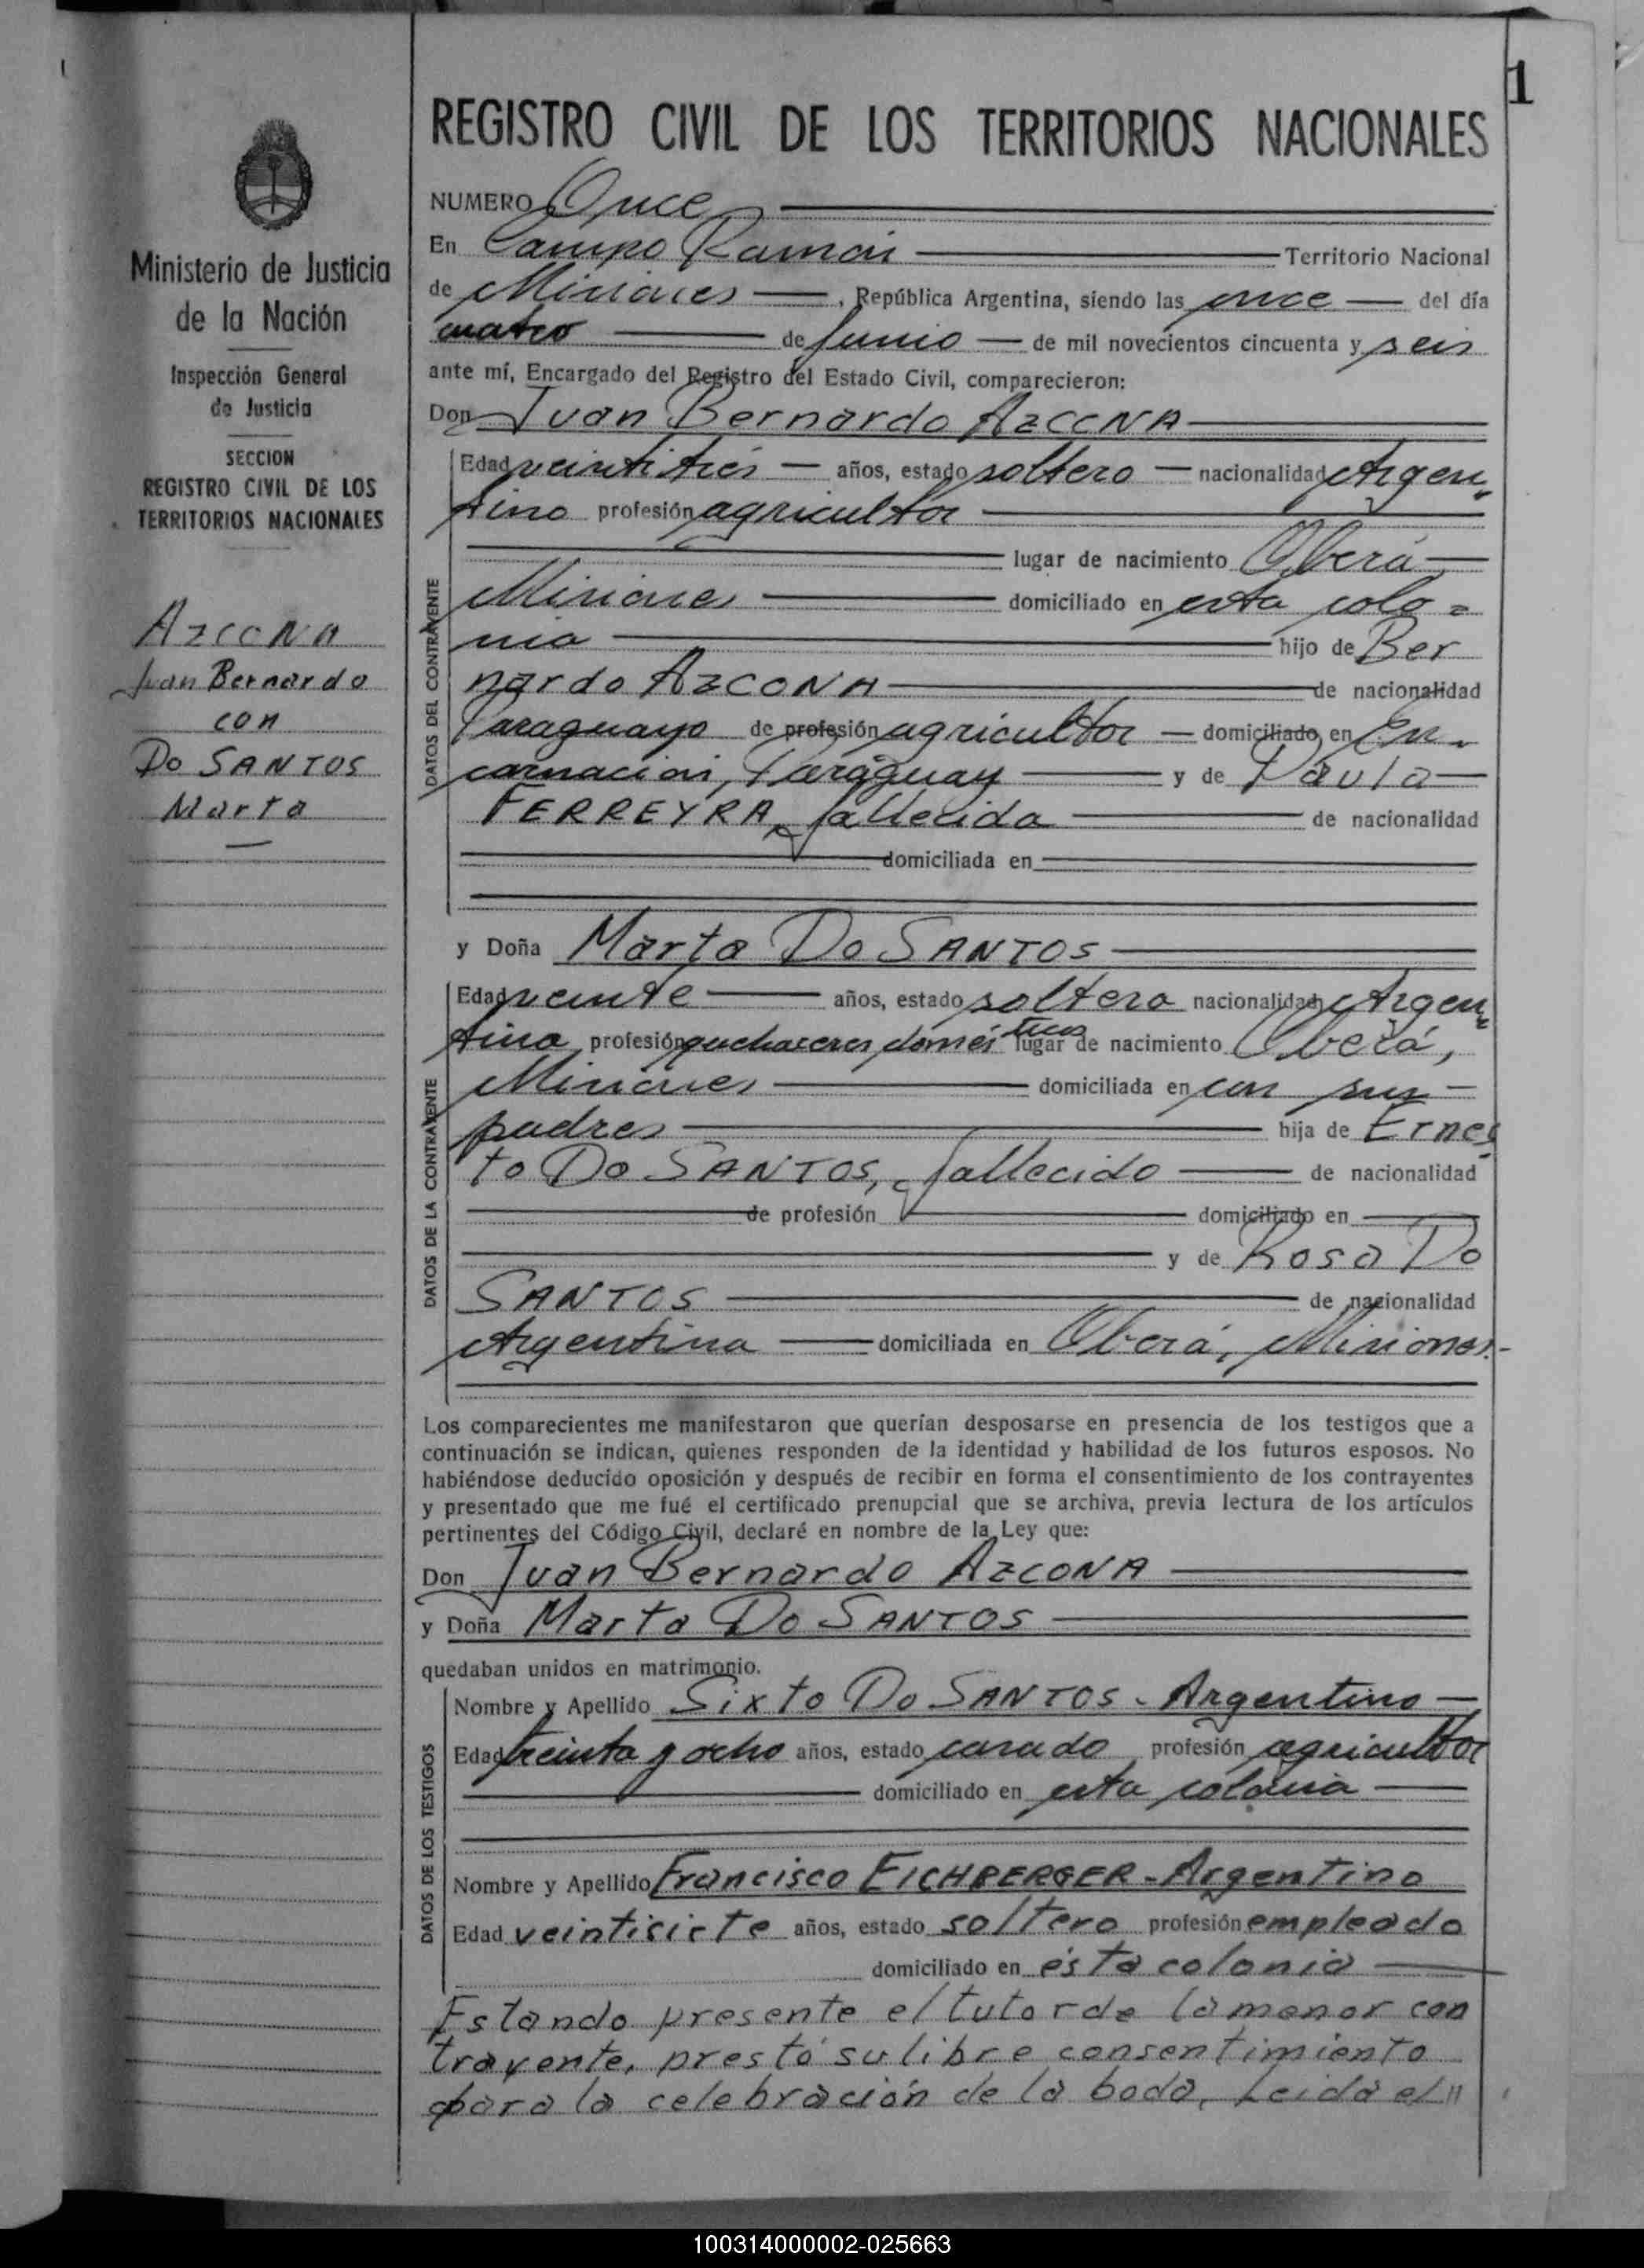 1
REGISTRO CIVIL DE LOS TERRITORIOS NACIONALES
Ministerio de Justicia
de la Nación
Inspección General
de Justicia
SECCION
REGISTRO CIVIL DE LOS
TERRITORIOS NACIONALES
AZCONA
Juan Bernardo
con
Do SANTOS
Marta
NUMERO Once
En Campo Ramón Territorio Nacional
de Misiones, República Argentina, siendo las once del día
cuatro de Junio de mil novecientos cincuenta y seis
ante mí, Encargado del Registro del Estado Civil, comparecieron:
Don Juan Bernardo AZCONA
DATOS DEL CONTRAYENTE
Edad veintitrés años, estado soltero nacionalidad Argen
tino profesión agricultor
lugar de nacimiento Oberá
Misiones domiciliado en esta colo=
nia hijo de Ber
nardo AZCONA de nacionalidad
Paraguayo de profesión agricultor domiciliado en En-
carnación, Paraguay y de Paula
FERREYRA, fallecida de nacionalidad
domiciliada en
y Doña Marta Do SANTOS
DATOS DE LA CONTRAYENTE
Edad veinte años, estado soltera nacionalidad Argen
tina profesión quehaceres domésticos lugar de nacimiento Oberá,
Misiones domiciliada en con sus
padres hija de Ernes
to Do SANTOS, fallecido de nacionalidad
de profesión domiciliado en
y de Rosa Do
SANTOS de nacionalidad
Argentina domiciliada en Oberá, Misiones.-
Los comparecientes me manifestaron que querían desposarse en presencia de los testigos que a
continuación se indican, quienes responden de la identidad y habilidad de los futuros esposos. No
habiéndose deducido oposición y después de recibir en forma el consentimiento de los contrayentes
y presentado que me fué el certificado prenupcial que se archiva, previa lectura de los artículos
pertinentes del Código Civil, declaré en nombre de la Ley que:
Don Juan Bernardo AZCONA
y Doña Marta Do SANTOS
quedaban unidos en matrimonio.
DATOS DE LOS TESTIGOS
Nombre y Apellido Sixto Do SANTOS - Argentino
Edad treinta y ocho años, estado casado profesión agricultor
domiciliado en esta colonia
Nombre y Apellido Francisco EICHBERGER - Argentino
Edad veintisiete años, estado soltero profesión empleado
domiciliado en ésta colonia
Estando presente el tutor de la menor con
trayente, prestó su libre consentimiento
para la celebración de la boda. Leida el //
100314000002-025663